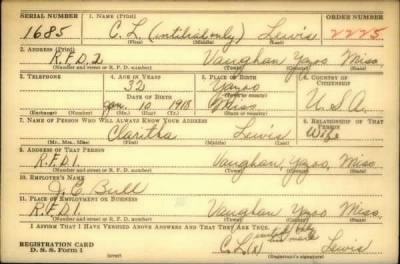 SERIAL NUMBER 1. NAME (Print) ORDER NUMBER
1685 C. L. (initial only) Lewis 2225
(First) (Middle) (Last)
2. ADDRESS (Print)
R.F.D. 2 Vaughan Yazoo Miss.
(Number and street or R. F. D. number) (Town) (County) (State)
3. TELEPHONE 4. AGE IN YEARS 5. PLACE OF BIRTH 6. COUNTRY OF CITIZENSHIP
32 Yazoo
DATE OF BIRTH (Town or county)
Jan. 10 1908 Miss. U.S.A.
(Exchange) (Number) (Mo.) (Day) (Yr.) (State or country)
7. NAME OF PERSON WHO WILL ALWAYS KNOW YOUR ADDRESS 8. RELATIONSHIP OF THAT PERSON
Claritha Lewis Wife
(Mr., Mrs., Miss) (First) (Middle) (Last)
9. ADDRESS OF THAT PERSON
R.F.D. 1. Vaughan, Yazoo, Miss.
(Number and street or R. F. D. number) (Town) (County) (State)
10. EMPLOYER'S NAME
J. E. Bull
11. PLACE OF EMPLOYMENT OR BUSINESS
R.F.D. 1 Vaughan Yazoo Miss.
(Number and street or R. F. D. number) (Town) (County) (State)
I AFFIRM THAT I HAVE VERIFIED ABOVE ANSWERS AND THAT THEY ARE TRUE.
REGISTRATION CARD
D. S. S. Form 1 C. L. (x) Lewis
(over) (Registrant's signature)